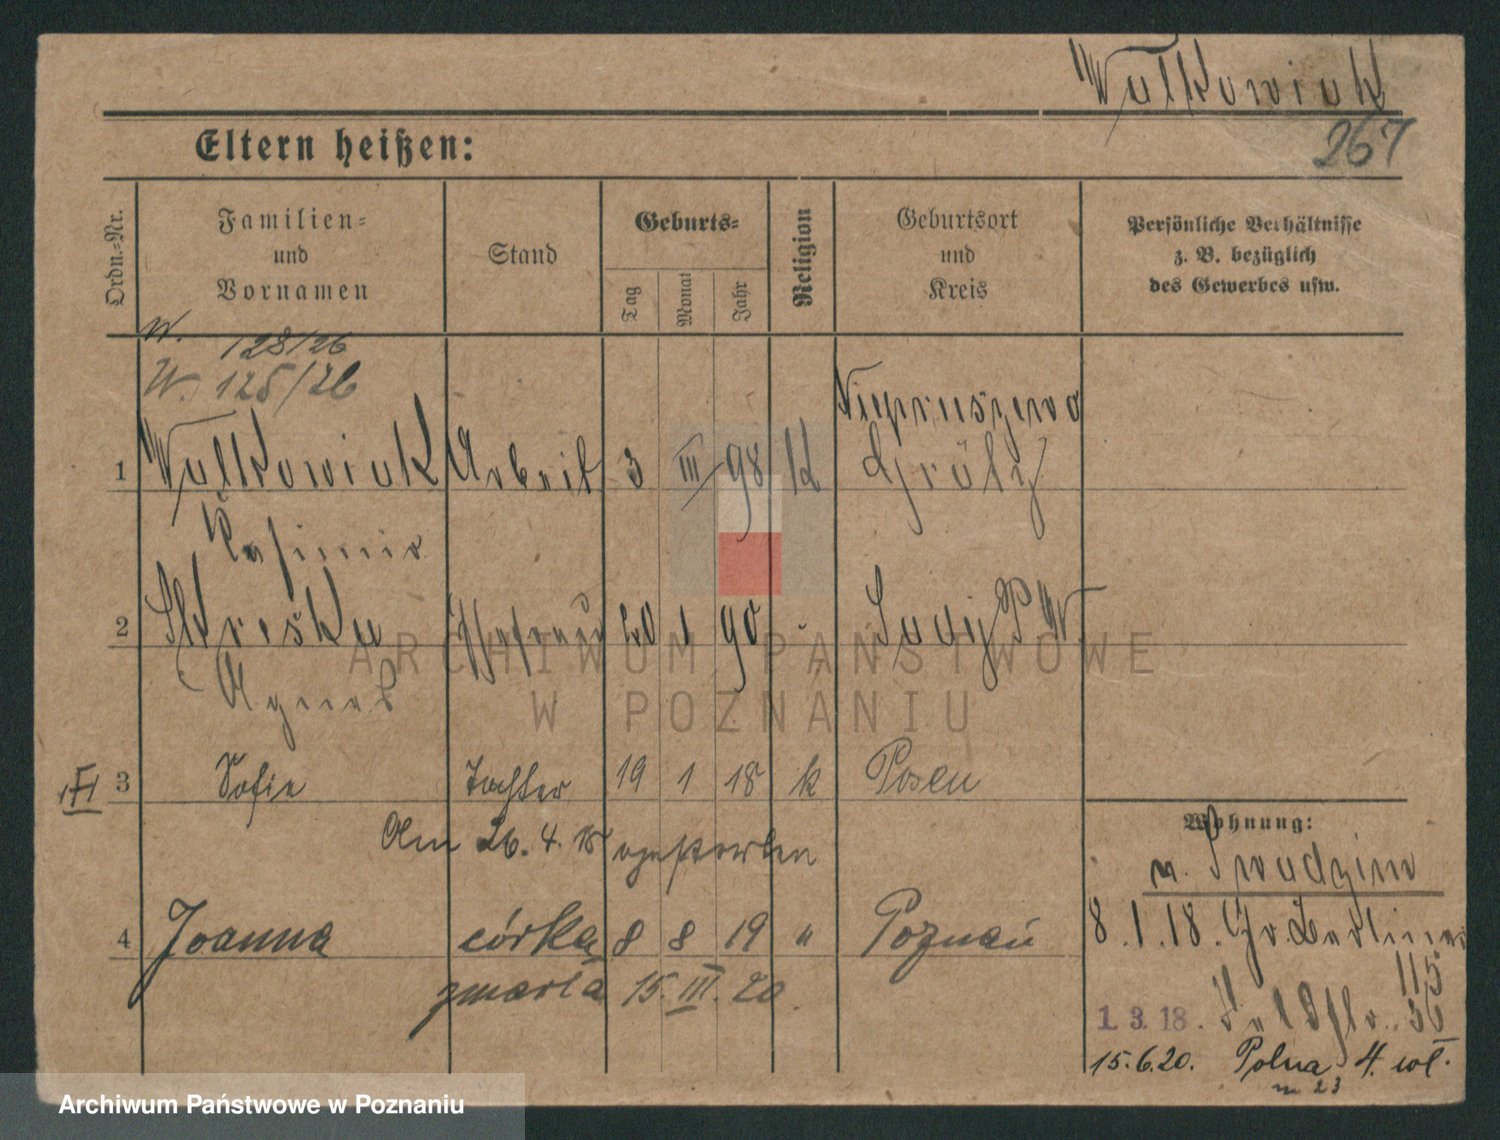 Walkowiak
267
Eltern heißen:
Ordn.=Nr.
Familien=
und
Vornamen
Stand
Geburts=
Tag
Monat
Jahr
Religion
Geburtsort
und
Kreis
Persönliche Verhältnisse
z. B. bezüglich
des Gewerbes usw.
W. 128/26
W. 125/26
1 Walkowiak Arbeit 3 III 98 K Niepruszewo
Grätz
Kasimir
2 20 1 90 "
Agnes
ARCHIWUM PAŃSTWOWE
W POZNANIU
3 Sofie Tochter 19 1 18 k Posen
Am 26. 4. 18 gestorben
Wohnung:
n.
4 Joanna córka 8 8 19 " Poznań
zmarła 15. III. 20.
8.1.18. Gr. Berliner
115
1.3.18. 36
15.6.20. Polna 4. wł.
m 23
Archiwum Państwowe w Poznaniu